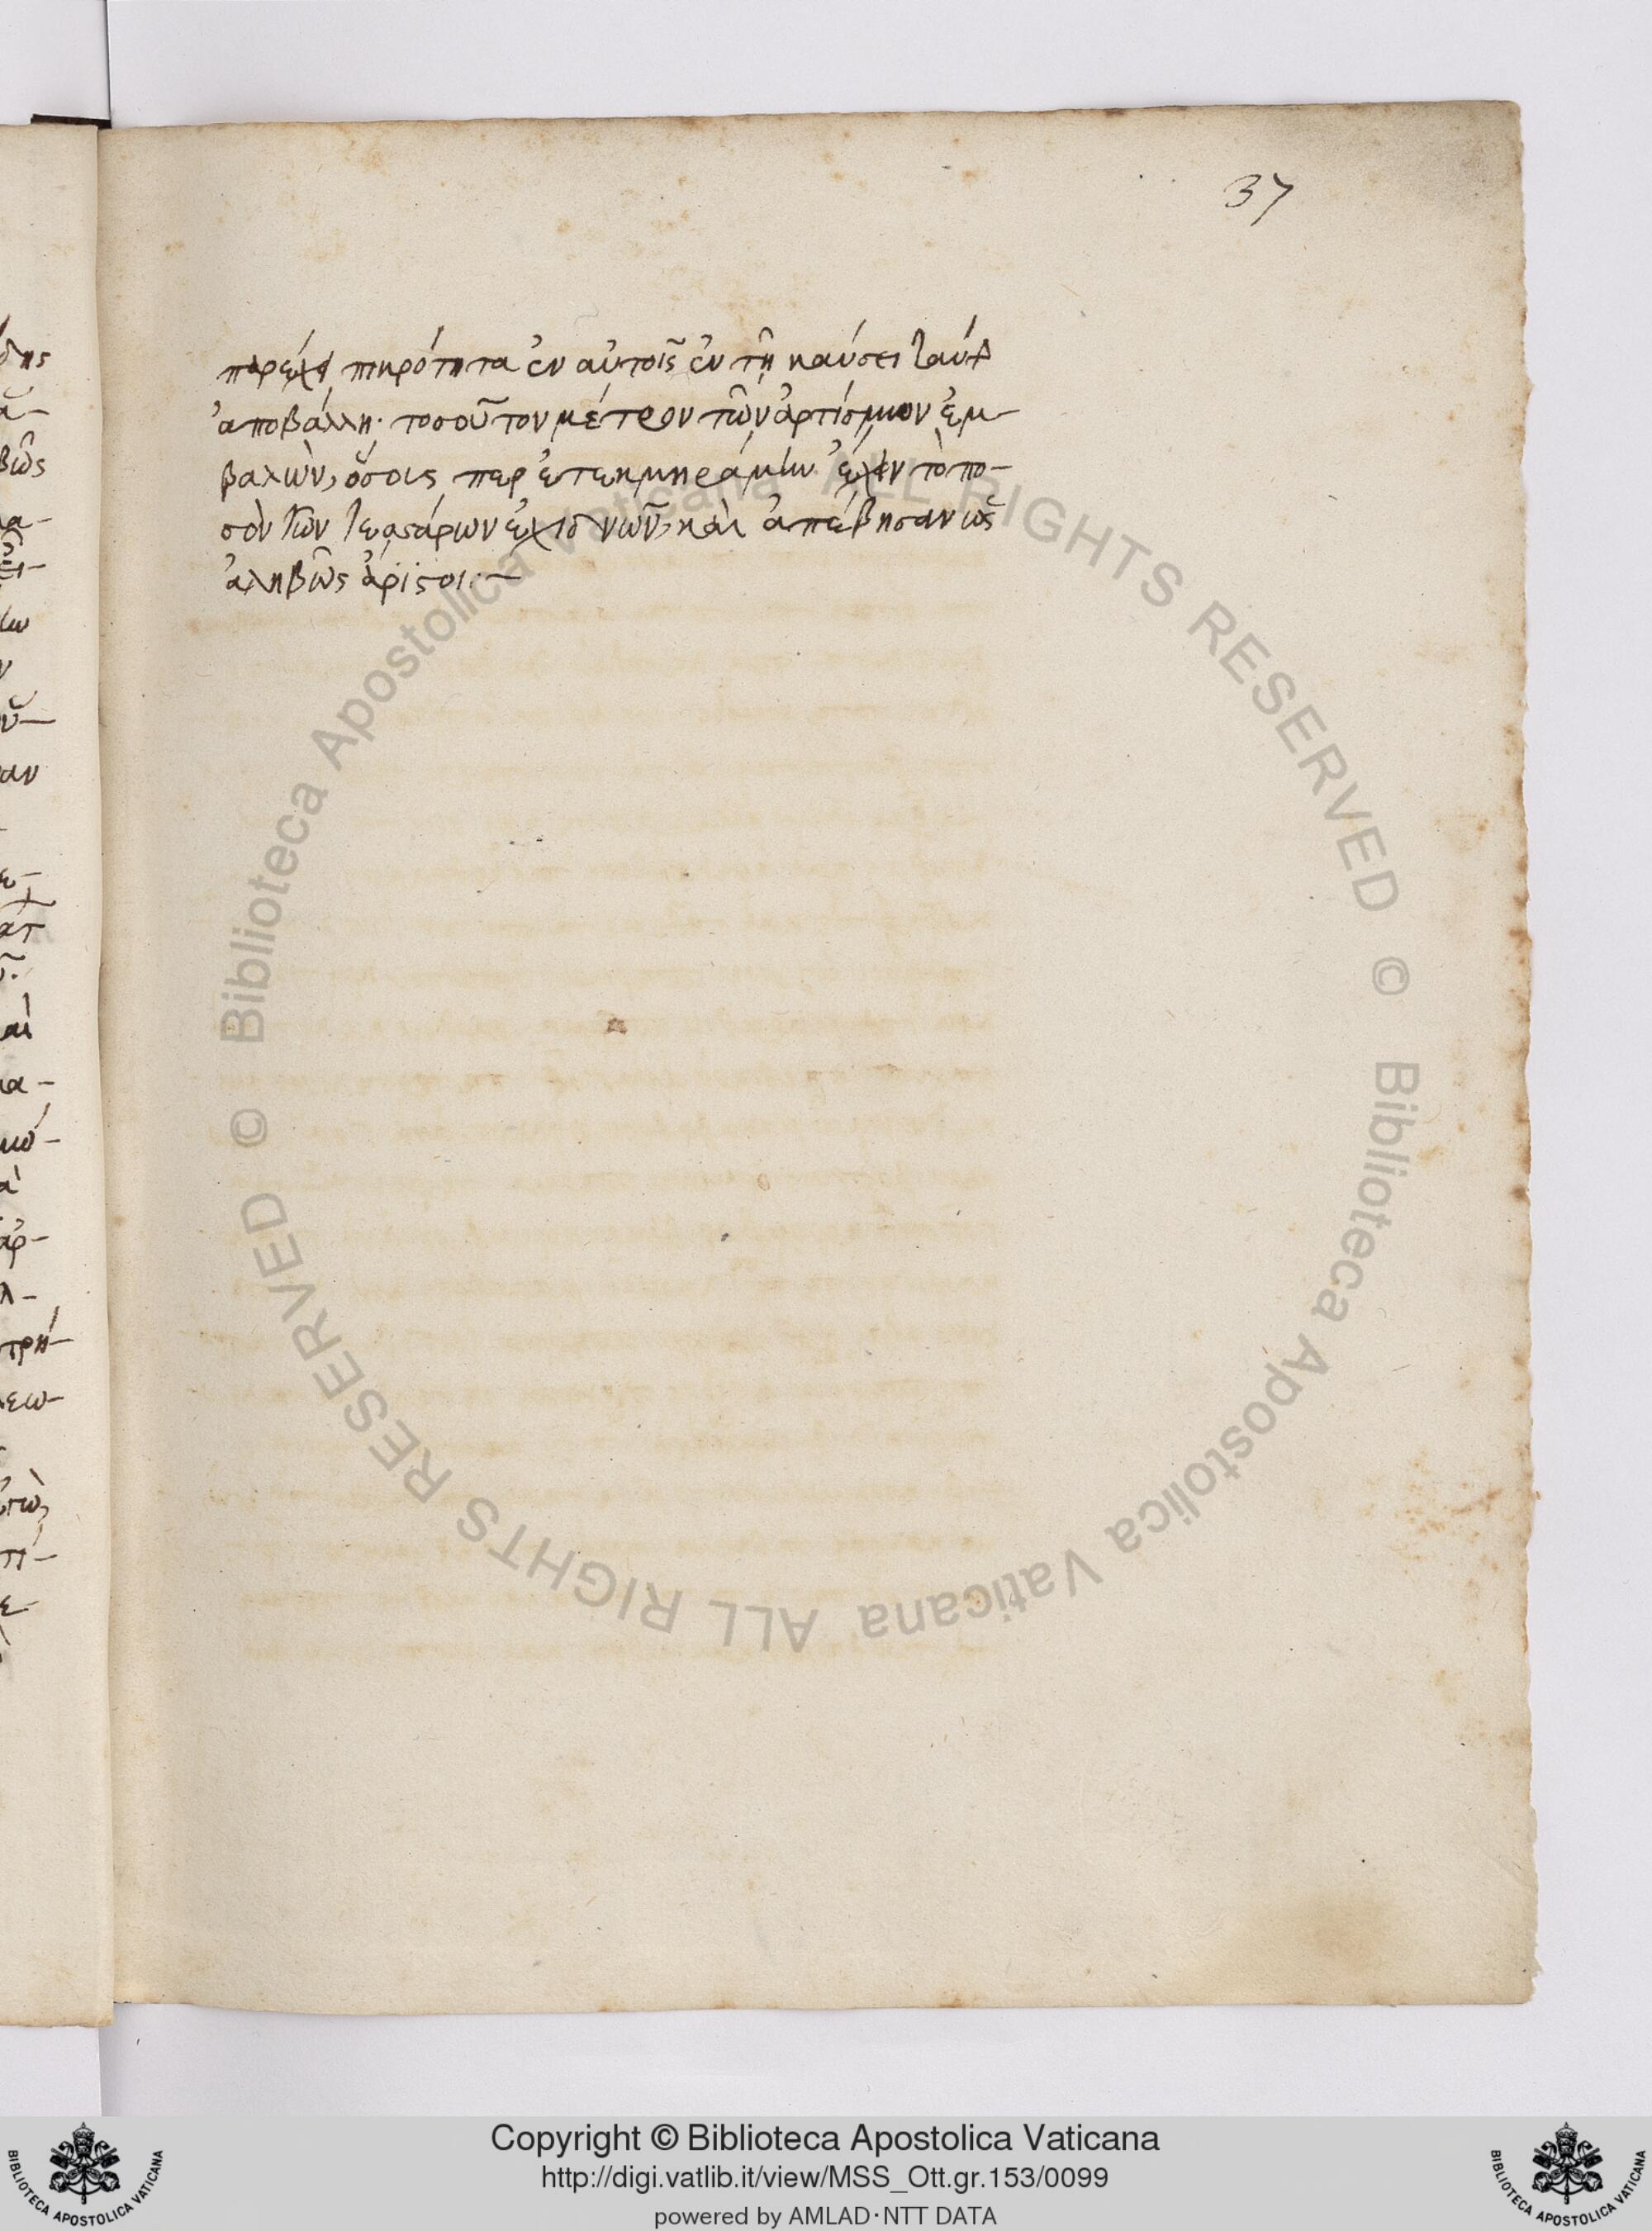 37
παρέχει πικρότητα ἐν αὐτοῖς ἐν τῇ καύσει ταύτ
ἀποβάλλῃ· τοσοῦτον μέτρον τῶν ἀρτίσκων ἐμ-
βαλὼν, ὅσοις περ ἐτεκμηράμην ἔχειν τὸ πο-
σὸν τῶν τεσσάρων ἐχιδνῶν, καὶ ἀπέβησαν ὡς
ἀληθῶς ἄριστοι:-
© Biblioteca Apostolica Vaticana ALL RIGHTS RESERVED
© Biblioteca Apostolica Vaticana ALL RIGHTS RESERVED
Copyright © Biblioteca Apostolica Vaticana
http://digi.vatlib.it/view/MSS_Ott.gr.153/0099
powered by AMLAD·NTT DATA
BIBLIOTECA APOSTOLICA VATICANA
BIBLIOTECA APOSTOLICA VATICANA